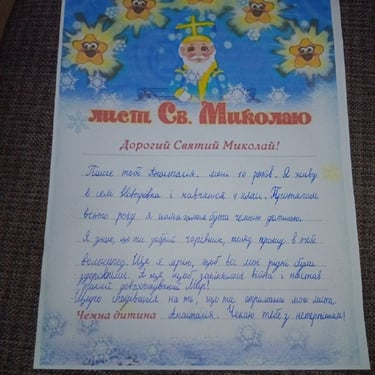 лист Св. Миколаю
Дорогий Святий Миколай!
Пише тобі Анастасія. Мені 10 років. Я живу
в селі і навчаюся 4 класі. Протягом
всього року я намагалася бути чемною дитиною.
Я знаю, що ти добрий чарівник, тому прошу в тебе
велосипед. Ще я мрію, щоб всі мої рідні були
здоровими. А ще, щоб закінчилася війна і настав
довгоочікуваний мир!
Щиро сподіваюся на те, що ти отримаєш мого листа.
Чемна дитина Анастасія. Чекаю тебе з нетерпінням!